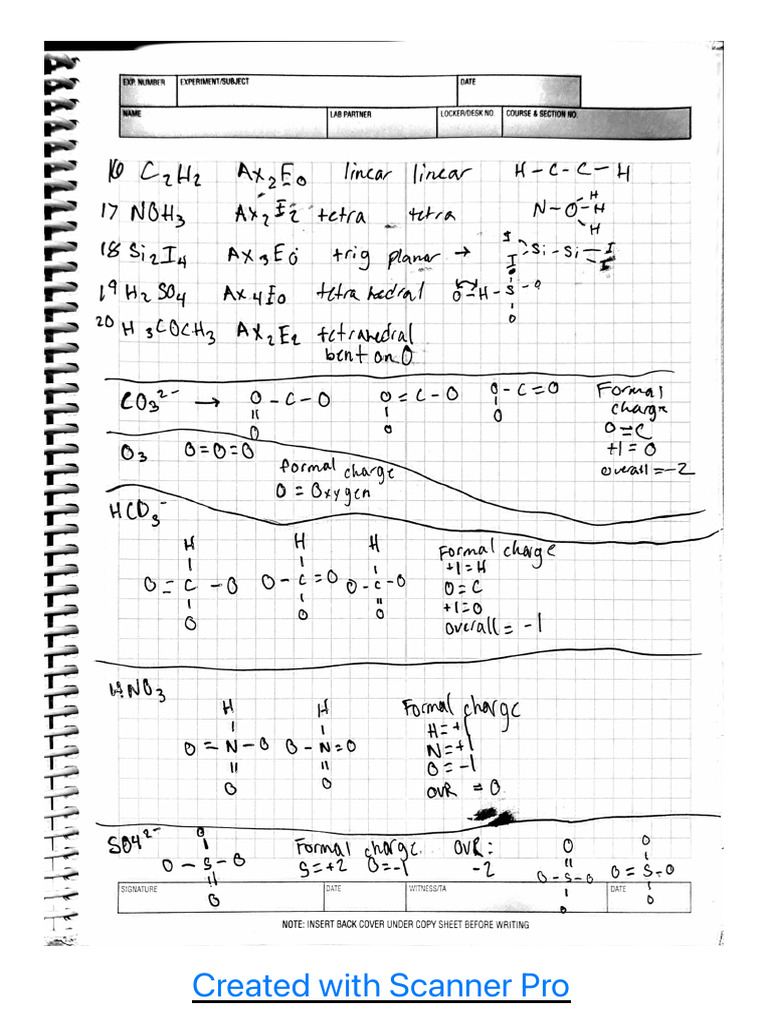 EXP. NUMBER EXPERIMENT/SUBJECT DATE
NAME LAB PARTNER LOCKER/DESK NO. COURSE & SECTION NO.
16 C2H2 AX2E0 linear linear H-C-C-H
17 NOH3 AX2E2 tetra tetra N-O-H
H
H
18 Si2I4 AX3E0 trig planar → Si-Si-I
I
I
I
19 H2SO4 AX4E0 tetrahedral O-H-S-O
O
20 H3COCH3 AX2E2 tetrahedral
bent on O
CO3 2- → O-C-O O=C-O O-C=O
O O O
Formal
charge
0=C
+1=O
overall=-2
O3 O=O=O
formal charge
0=Oxygen
HCO3-
H H H
O=C-O O-C=O O-C-O
O O O
Formal charge
+1=H
0=C
+1=O
overall=-1
HNO3
H H
O=N-O O-N=O
O O
Formal charge
H=+1
N=+1
O=-1
OVR=0
SO4 2-
O
O-S-O
O
Formal charge OVR:
S=+2 O=-1 -2
O
O-S-O
O
O
O=S-O
O
SIGNATURE DATE WITNESS/TA DATE
NOTE: INSERT BACK COVER UNDER COPY SHEET BEFORE WRITING
Created with Scanner Pro